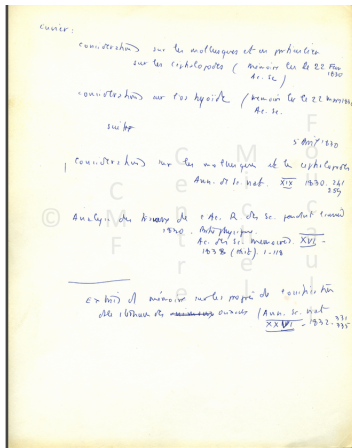 Cuvier:
Considérations sur les mollusques et en particulier
sur les céphalopodes (mémoire lu le 22 Fev
1830
Ac. Sc)
Considérations sur l'os hyoïde (mémoire lu le 22 mars 1830
Ac. Sc.
suite
5 Avril 1830
Considérations sur les mollusques et les céphalopodes
Ann. de Sc. nat. XIX 1830. 241
259
Analyse des travaux de l'Ac. R. des Sc. pendant l'année
1830. Partie physique.
Ac. des Sc. mémoires. XVI -
1838 (Hist). 1-118
Extrait d'mémoire sur les progrès de l'ossification
du sternum des oiseaux (Ann. Sc. nat
XXVI - 1832.
© Centre M Foucault
CMF